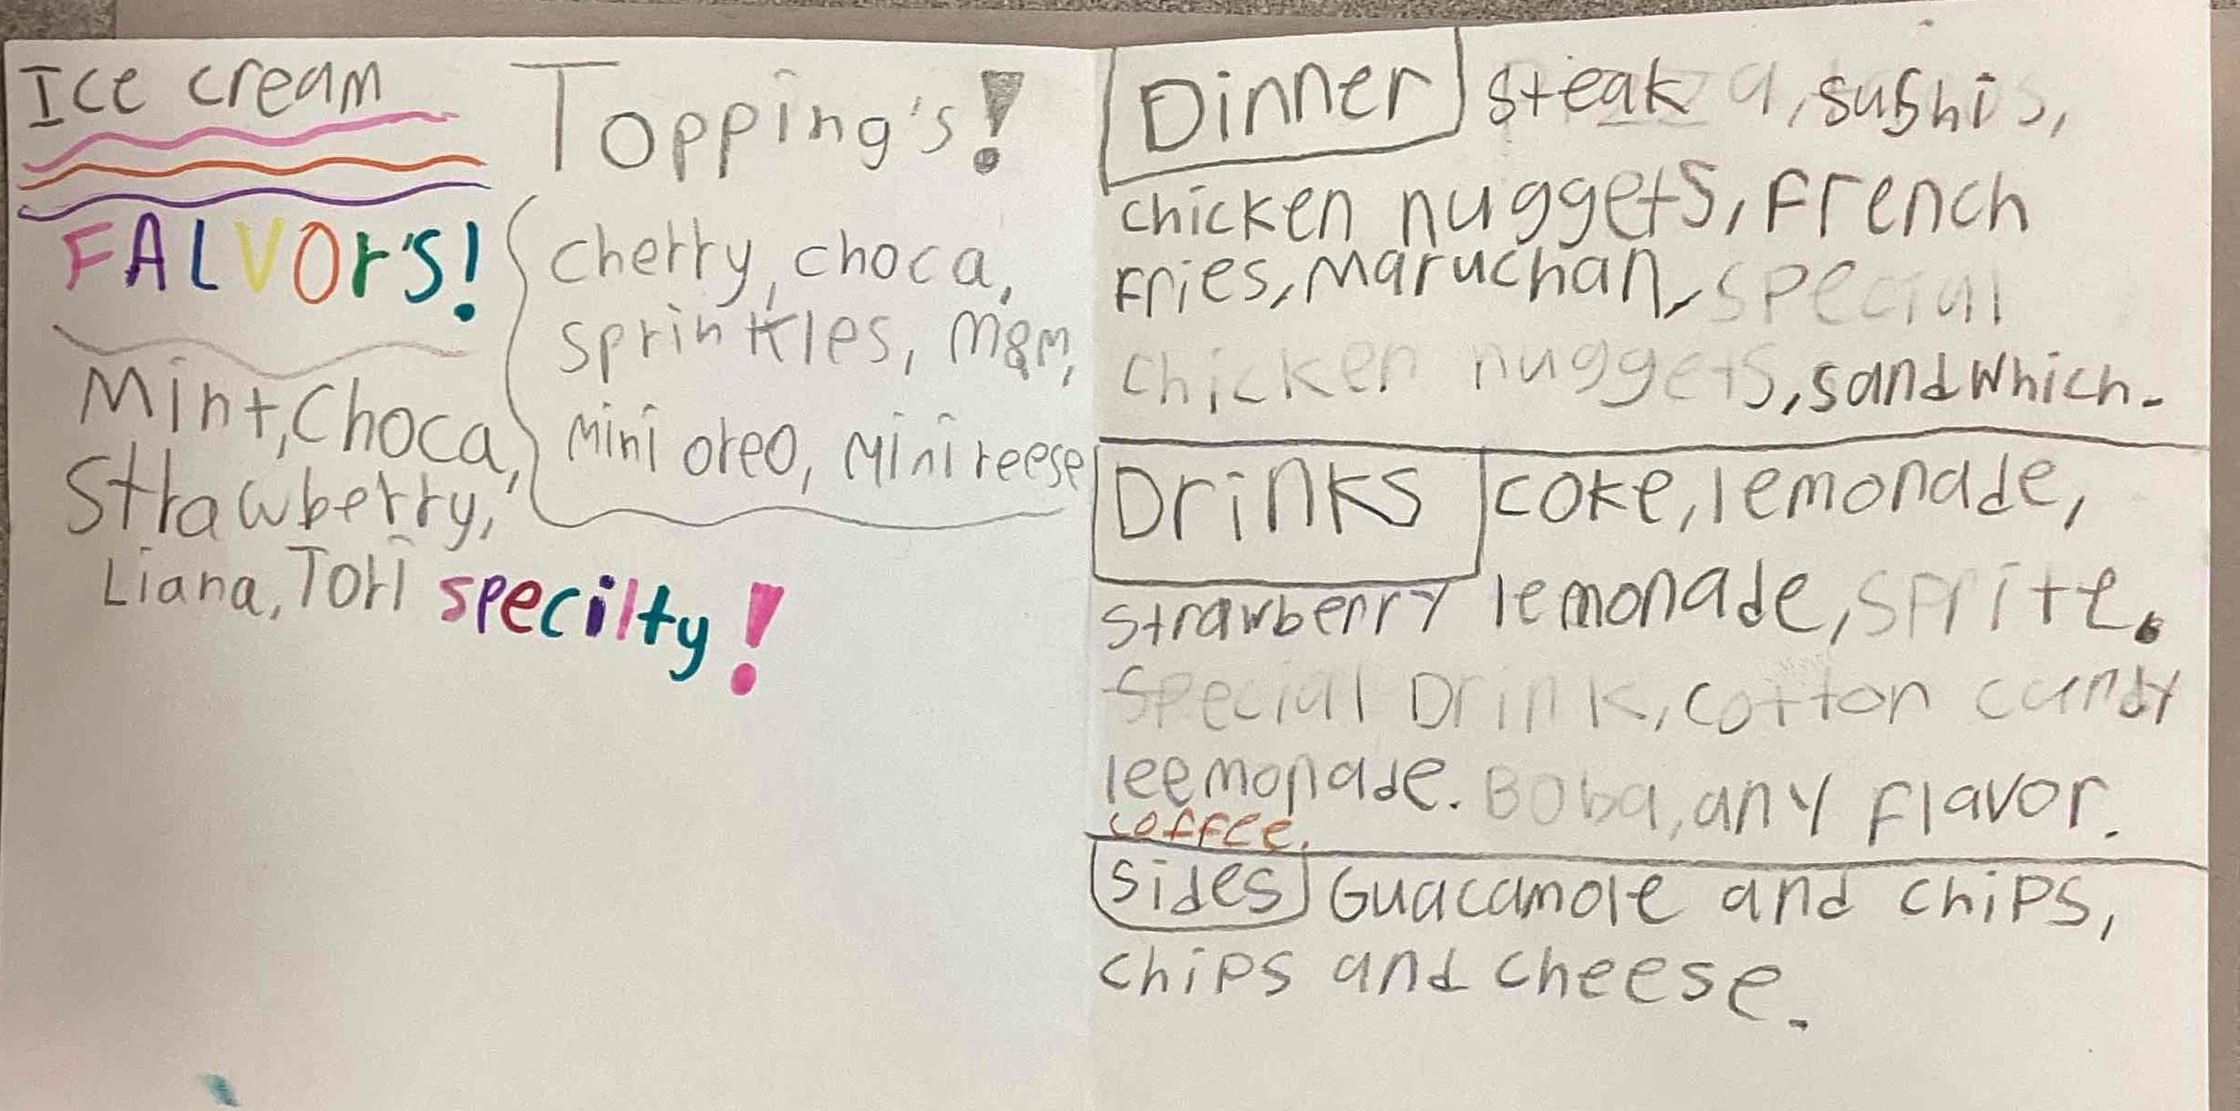 Ice cream
FALVOr'S!
Mint, Choca,
Strawberry,
Liana, Tori specilty!
Topping's!
Cherry, choca,
sprinkles, M&M,
Mini oreo, Mini reese
Dinner steak, sushi,
chicken nuggets, French
Fries, Maruchan, special
chicken nuggets, sandwhich.
Drinks coke, lemonade,
strawberry lemonade, sprite.
Special Drink, cotton candy
leemonade. Boba, any flavor.
coffee.
Sides Guacamole and chips,
chips and cheese.